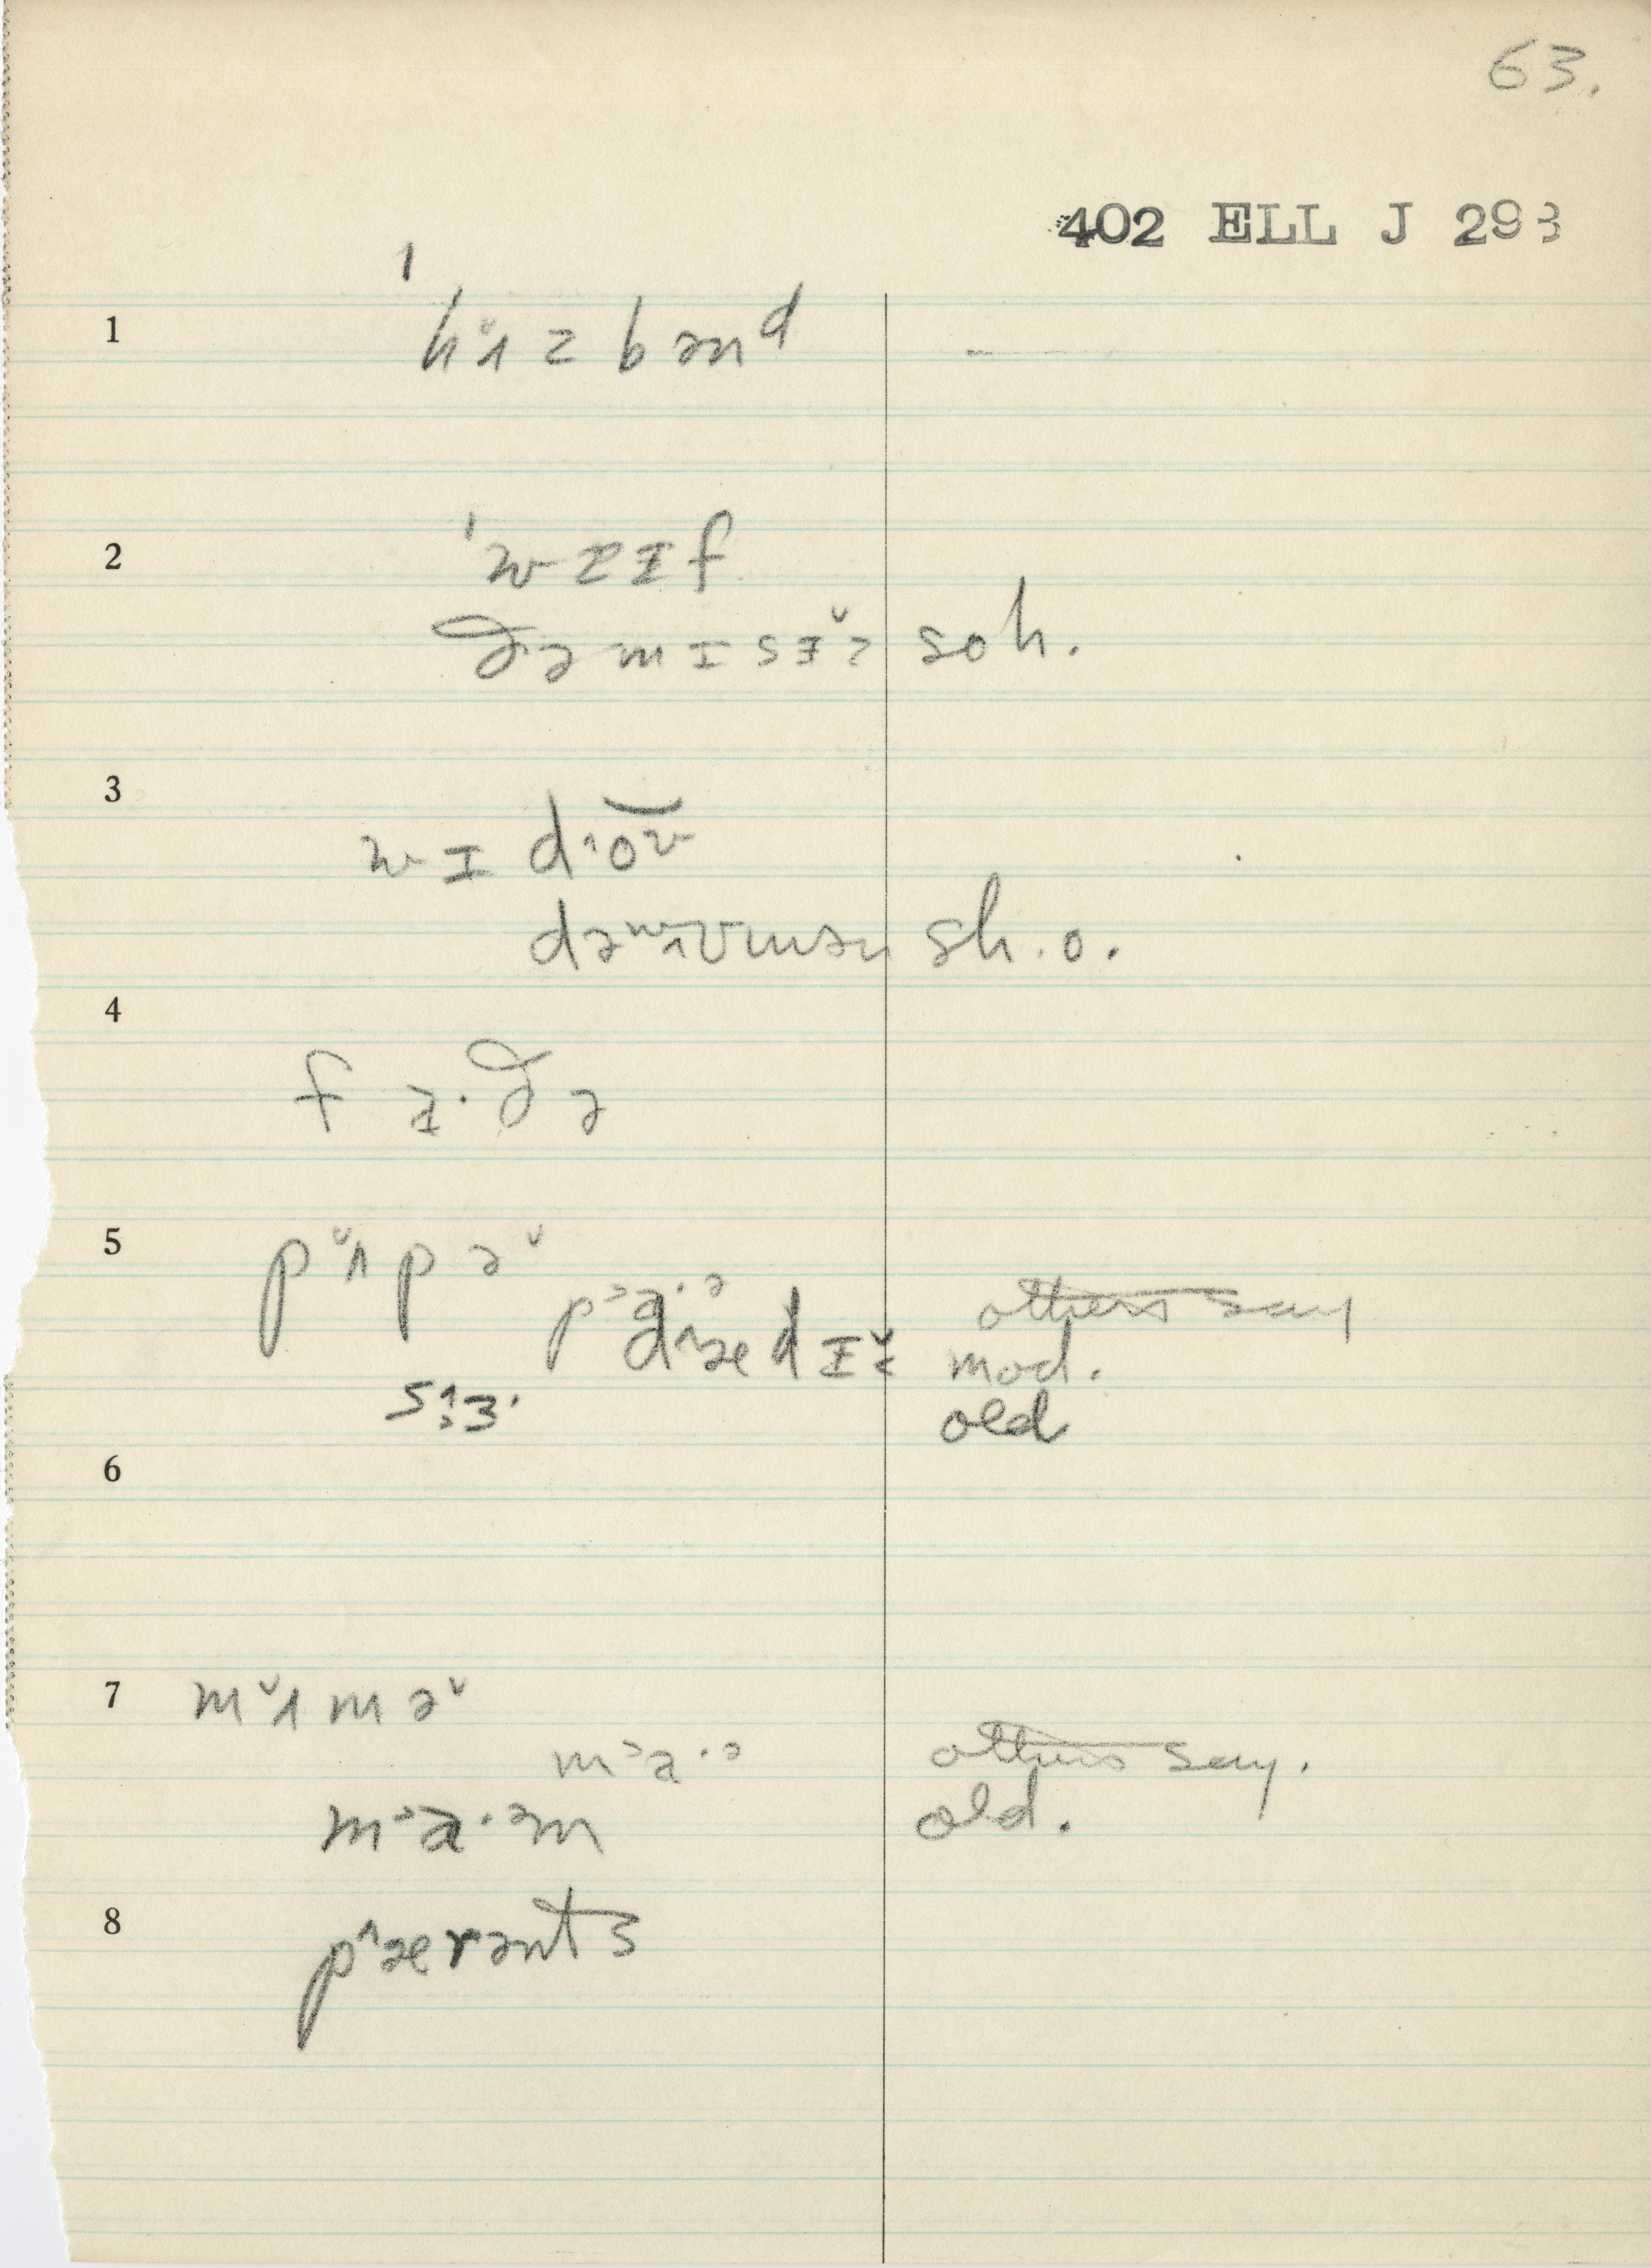 63.
402 ELL J 293
1 ˈhʌ̌zbənᵈ —
2 ˈwɐɪf
ðəmɪsɨ̌z soh.
3 wɪdˈoʊ
dəwʌʊmən sh. o.
4 fɑ·ðə
5 pʌ̌pə̌
p˃a·ə others say
dˆædɪ̌ mod.
sɜ· old
6
7 mʌ̌mə̌
m˃a·ə others say.
m˃a·əm old.
8 pˆærənts